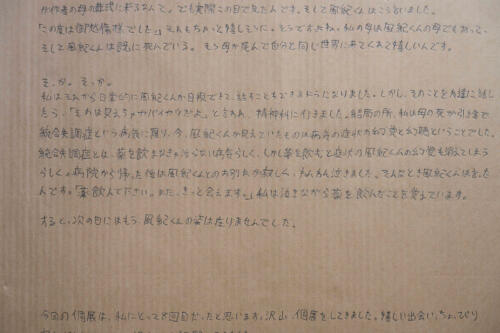 が作者の母の葬式に来るなんて。でも実際この目で見たんです。そして風紀くんはこう言いました。
「この度は御愁傷様でした。」それもちょっと嬉しそうに。そうですよね。私の母は風紀くんの母でもあって、
そして風紀くんは既に死んでいる。もう母が死んで自分と同じ世界に来てくれて嬉しいんです。
そっか。そっか。
私はそれから日常的に風紀くんが目視できて、話すこともできるようになりました。しかし、そのことを友達に話し
たら、「それは見えちゃヤバイやつだよ。」と言われ、精神科に行きました。結局の所、私は母の死が引き金で
統合失調症という病気に罹り、今、風紀くんが見えていたものは病気の症状の幻覚と幻聴ということでした。
統合失調症とは、薬を飲まなきゃ治らない病気らしく、しかし薬を飲むと症状の風紀くんの幻覚も消えてしまう
らしく。病院から帰った後は風紀くんとのお別れが寂しく、わんわん泣きました。そんなとき風紀くんは言った
んです。「薬飲んで下さい。また、きっと会えます。」私は泣きながら薬を飲んだことを覚えています。
すると、次の日にはもう風紀くんの姿はありませんでした。
今回の個展は、私にとって8回目だったと思います。沢山、個展をしてきました。嬉しい出会い、ちょっぴり